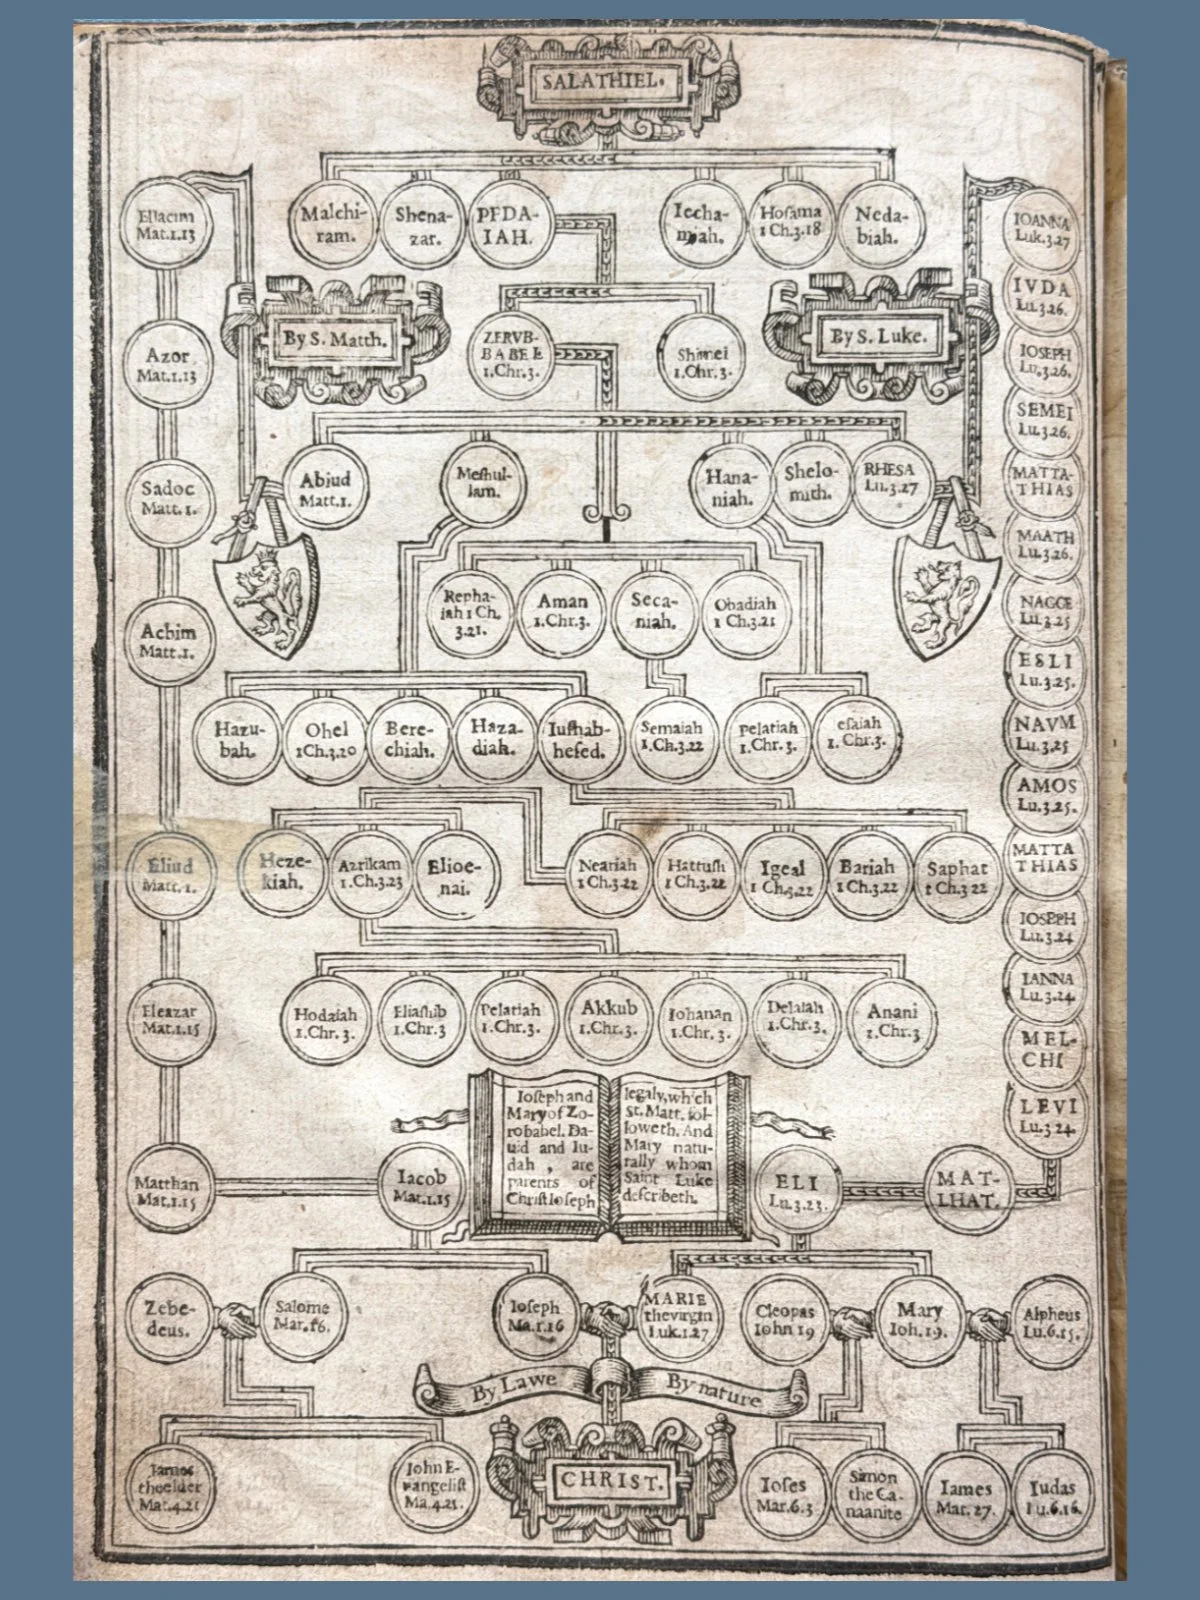 SALATHIEL.
Malchi-
ram.
Shena-
zar.
PEDA-
IAH.
Iecha-
miah.
Hosama
1 Ch.3.18
Neda-
biah.
Eliacim
Mat.1.13
Azor
Mat.1.13
Sadoc
Matt.1.
Achim
Matt.1.
Eliud
Matt.1.
Eleazar
Mat.1.15
Matthan
Mat.1.15
By S. Matth.
ZERVB-
BABEL
1.Chr.3.
Shimei
1.Chr.3.
By S. Luke.
IOANNA
Luk.3.27
IVDA
Lu.3.26.
IOSEPH
Lu.3.26.
SEMEI
Lu.3.26.
MATTA-
THIAS
MAATH
Lu.3.26.
NAGGE
Lu.3.25
ESLI
Lu.3.25.
NAVM
Lu.3.25
AMOS
Lu.3.25.
MATTA
THIAS
IOSEPH
Lu.3.24
IANNA
Lu.3.24.
MEL-
CHI
LEVI
Lu.3 24.
Abiud
Matt.1.
Meshul-
lam.
Hana-
niah.
Shelo-
mith.
RHESA
Lu.3.27
Repha-
iah 1 Ch.
3.21.
Aman
1.Chr.3.
Seca-
niah.
Obadiah
1 Ch.3.21
Hazu-
bah.
Ohel
1Ch.3.20
Bere-
chiah.
Haza-
diah.
Iushab-
hesed.
Semaiah
1.Ch.3.22
pelatiah
1.Chr.3.
esaiah
1. Chr.3.
Heze-
kiah.
Azrikam
1.Ch.3.23
Elioe-
nai.
Neariah
1 Ch.3.22
Hattush
1 Ch.3.22
Igeal
1 Ch.3.22
Bariah
1 Ch.3.22
Saphat
1 Ch 3 22
Hodaiah
1.Chr.3.
Eliashib
1.Chr.3
Pelatiah
1.Chr.3.
Akkub
1.Chr.3.
Iohanan
1.Chr.3.
Delaiah
1.Chr.3.
Anani
1.Chr.3
Ioseph and
Mary of Zo-
robabel. Da-
uid and Iu-
dah , are
parents of
Christ Ioseph
legaly, which
St. Matt. fol-
loweth. And
Mary natu-
rally whom
Saint Luke
describeth.
Iacob
Mat.1.15
ELI
Lu.3.23.
MAT-
LHAT.
Zebe-
deus.
Salome
Mar.16.
Ioseph
Ma.1.16
MARIE
the virgin
Luk.1.27
Cleopas
Iohn 19
Mary
Ioh.19.
Alpheus
Lu.6.15.
By Lawe
By nature
Iames
the elder
Mat.4.21
Iohn E-
vangelist
Ma.4.21.
CHRIST.
Ioses
Mar.6.3
Simon
the Ca-
naanite
Iames
Mar.27.
Iudas
Lu.6.16.